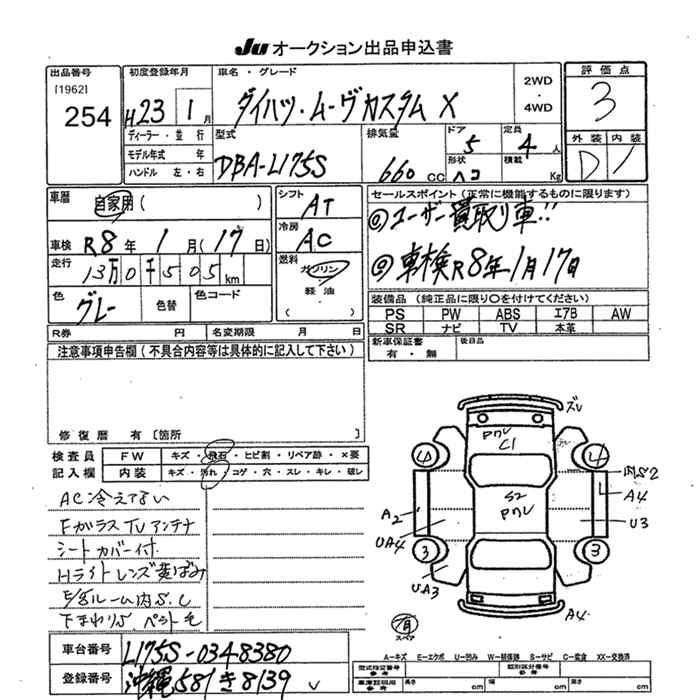 Ju オークション出品申込書
出品番号
[1962]
254
初度登録年月
H23年 1月
ディーラー・並行
モデル年式 年
ハンドル 左・右
車名・グレード
ダイハツ・ムーヴカスタム X
2WD
・
4WD
型式
DBA-L175S
排気量
660 CC
ドア
5
定員
4人
形状
積載
Kg
評価点
3
外装 内装
D 1
車歴
自家用( )
車検 R8年 1月(17日)
走行
13万0千505km
色
グレー
色替
色コード
シフト
AT
冷房
AC
燃料
ガソリン
軽油
( )
セールスポイント(正常に機能するものに限ります)
◎ユーザー買取り車!!
◎車検R8年1月17日
装備品(純正品に限り○を付けてください)
PS PW ABS エアB AW
SR ナビ TV 本革
R券 円 名変期限 月 日
新車保証書
有・無
後日品
注意事項申告欄(不具合内容等は具体的に記入して下さい)
修復歴 有〔箇所 〕
検査員
記入欄
FW キズ・飛石・ヒビ割・リペア跡・×要
内装 キズ・汚れ・コゲ・穴・スレ・キレ・破レ
AC冷えてない
FガラスTVアンテナ
シートカバー付
Hライトレンズ黄ばみ
下まわりS.
ズレ
C1
4
4
S2
A4
A2
U3
UA4
3
3
UA3
A4
有
スペア
A-キズ E-エクボ U-凹み W-補修跡 S-サビ C-腐食 XX-交換済
型式指定番号
参考
類別区分番号
参考
参考
長さ cm
幅 cm
高さ cm
車台番号
L175S-0348380
登録番号
沖縄 581 き 8139